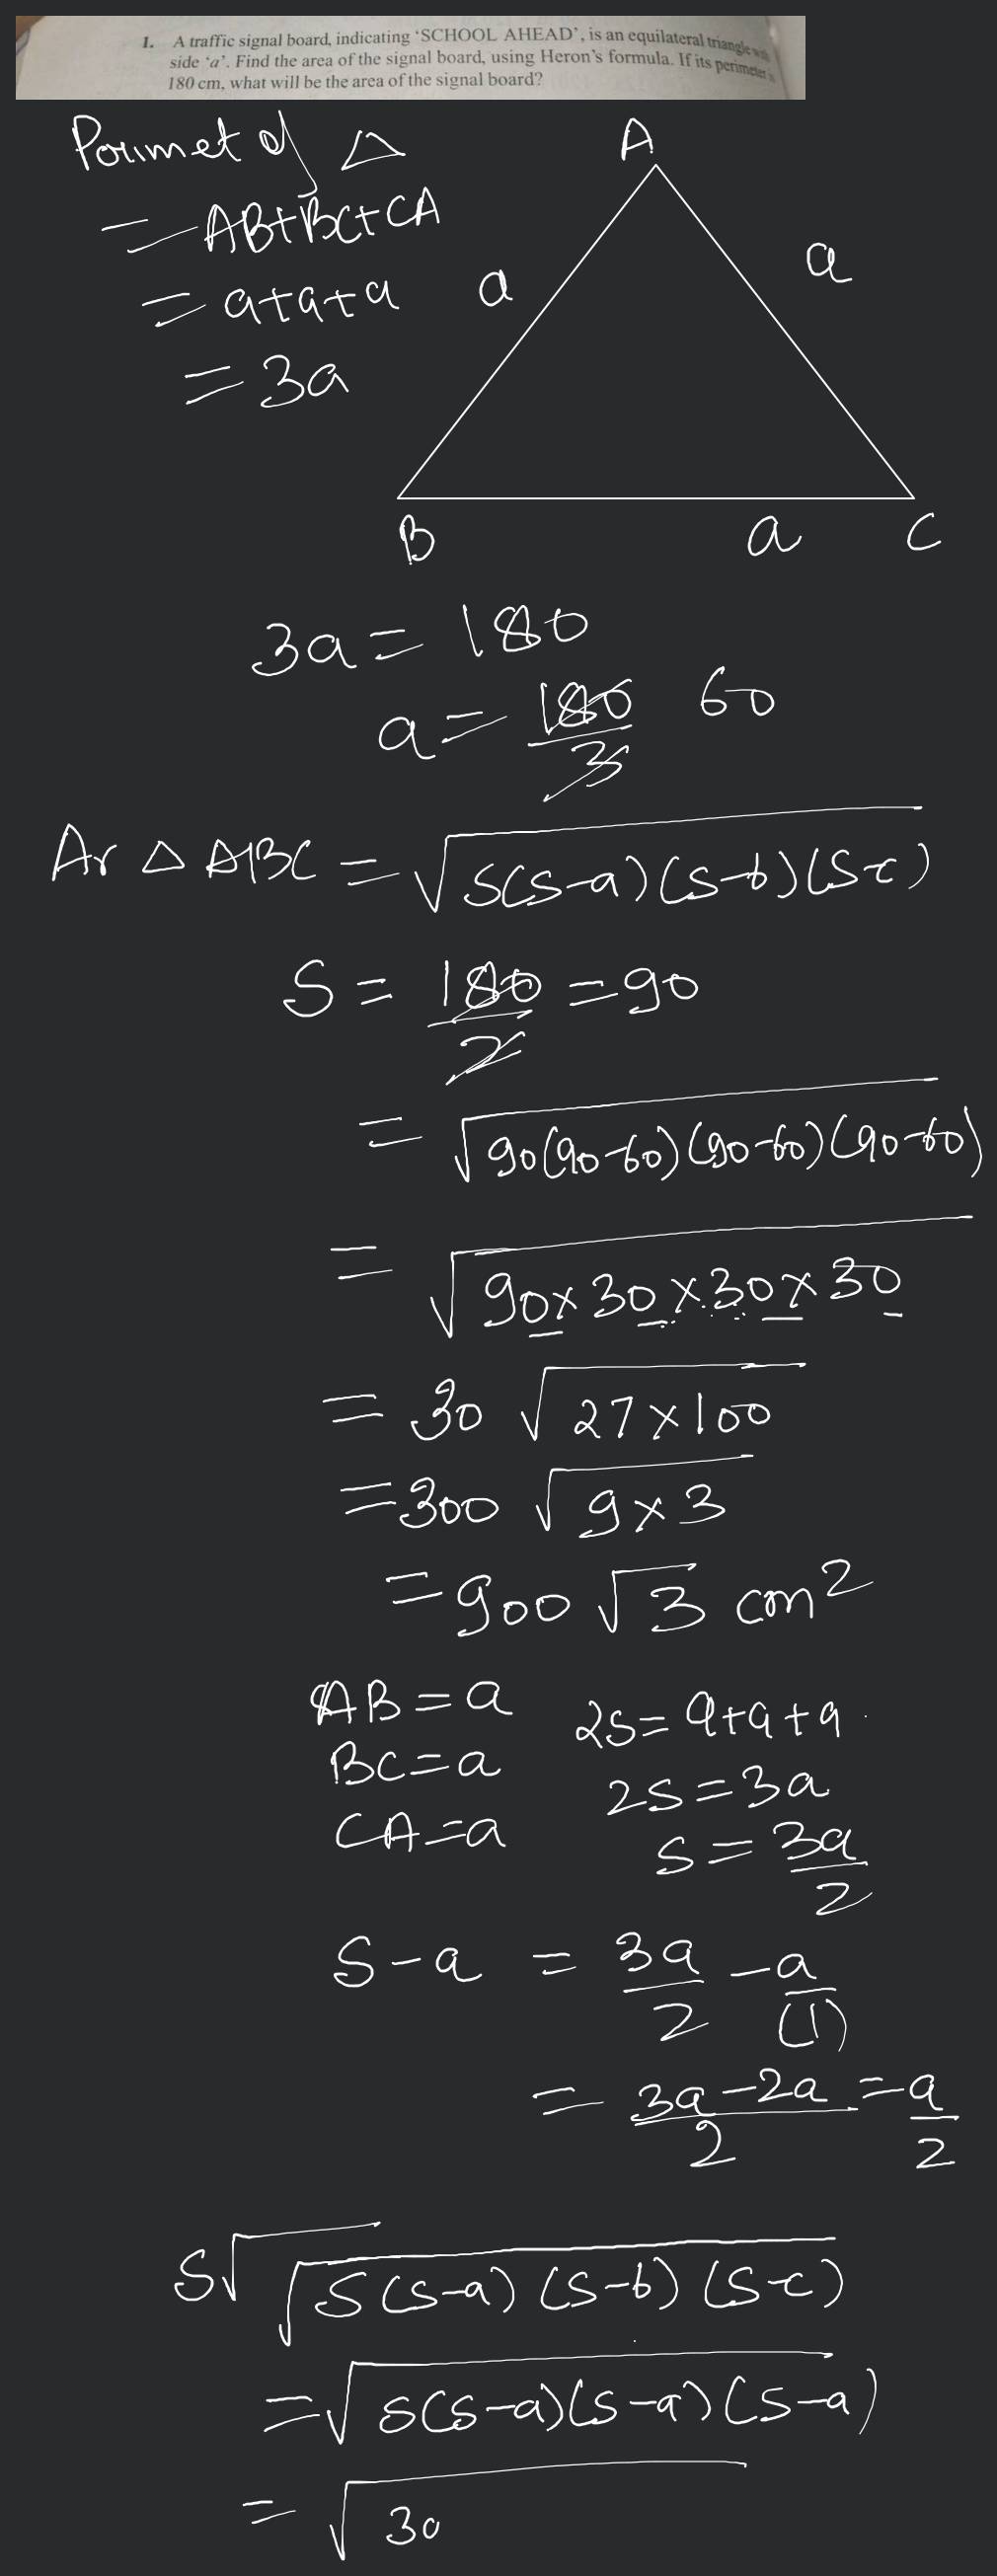 1. A traffic signal board, indicating 'SCHOOL AHEAD', is an equilateral triangle with
side 'a'. Find the area of the signal board, using Heron's formula. If its perimeter is
180 cm, what will be the area of the signal board?
Perimet of △
= AB+BC+CA
= a+a+a
= 3a
A
a
a
B
a
C
3a = 180
a = 180/3 60
Ar △ ABC = √S(S-a)(S-b)(S-c)
S = 180/2 = 90
= √90(90-60)(90-60)(90-60)
= √90×30×30×30
= 30 √27×100
= 300 √9×3
= 900 √3 cm²
AB = a
BC = a
CA = a
2S = a+a+a
2S = 3a
S = 3a/2
S-a = 3a/2 - a/(1)
= 3a-2a/2 = a/2
S√
√S(S-a)(S-b)(S-c)
= √S(S-a)(S-a)(S-a)
= √30